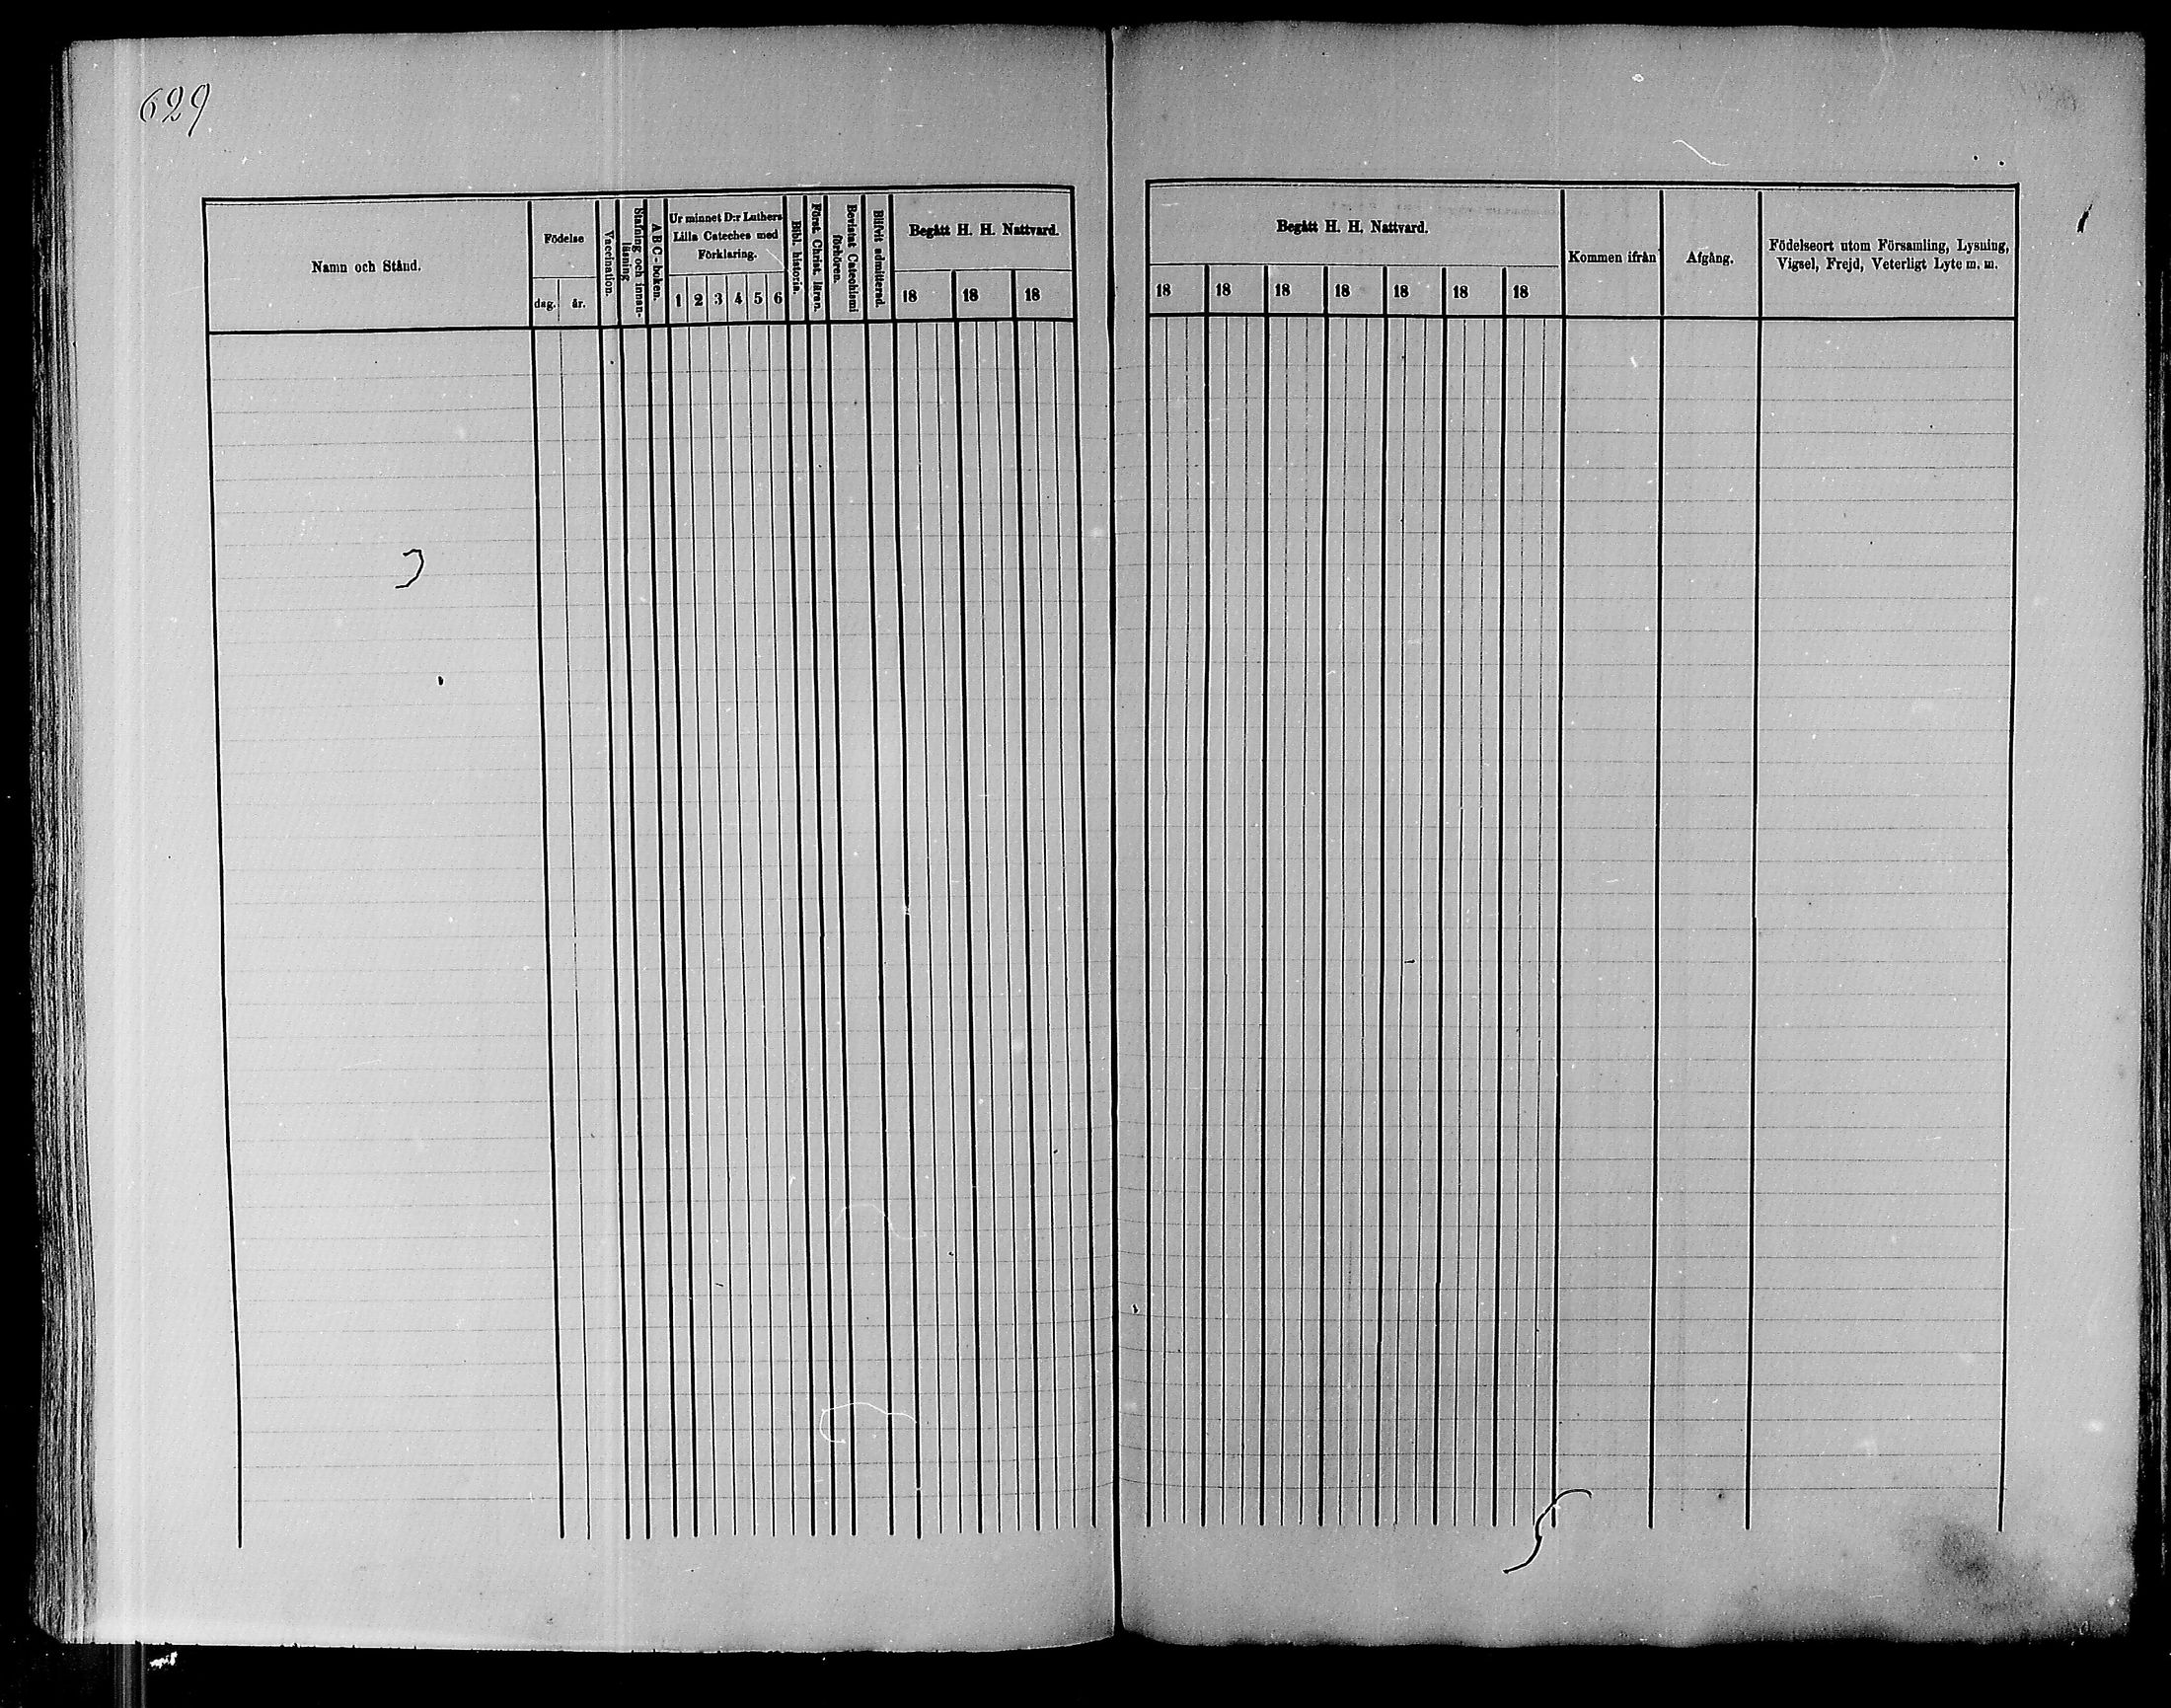 629
Namn och Stånd.
Födelse
dag.
år.
Vaccination.
Stafning och innan-
läsning
A B C-boken.
Ur minnet D:r Luthers
Lilla Cateches med
Förklaring.
1 2 3 4 5 6
Bibl. historia.
Först. Christ. läran.
Bevistat Catechismi
förhören.
Blifvit admitterad.
Begått H. H. Nattvard.
18 18 18
Begått H. H. Nattvard.
18 18 18 18 18 18 18
Kommen ifrån
Afgång.
Födelseort utom Församling, Lysning,
Vigsel, Frejd, Veterligt Lyte m. m.